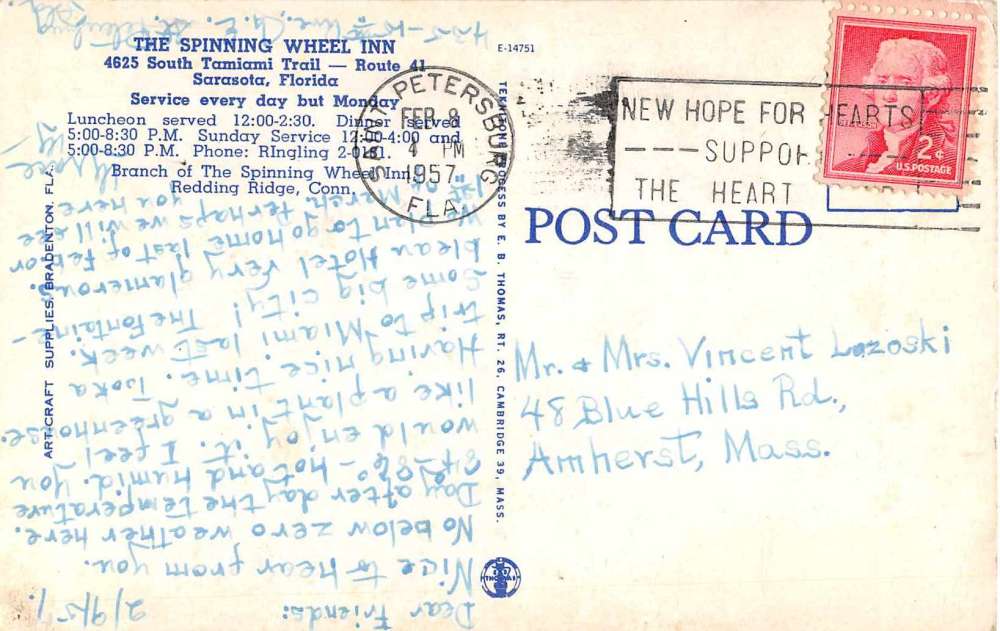 THE SPINNING WHEEL INN
4625 South Tamiami Trail — Route 41
Sarasota, Florida
Service every day but Monday
Luncheon served 12:00-2:30. Dinner served
5:00-8:30 P.M. Sunday Service 12:00-4:00 and
5:00-8:30 P.M. Phone: RIngling
Branch of The Spinning Wheel Inn,
Redding Ridge, Conn.
E-14751
ART-CRAFT SUPPLIES, BRADENTON, FLA.
TEXTONE PROCESS BY E. B. THOMAS, RT. 26, CAMBRIDGE 39, MASS.
THOMAS
POST CARD
SAINT PETERSBURG
FEB 8
4 PM
1957
FLA.
NEW HOPE FOR HEARTS
SUPPOR
THE HEART
2¢
U.S. POSTAGE
Mr. & Mrs. Vincent Lazoski
48 Blue Hills Rd.,
Amherst, Mass.
2/9/57.
Dear Friends:
Nice to hear from you.
No below zero weather here.
Day after day the temperature
86° - hot and humid. You
would enjoy it. I feel
like a plant in a greenhouse.
Having nice time. Took a
trip to Miami last week.
Some big city! The Fontaine-
bleau Hotel very glamerous.
We plan to go home last of Feb or
1st of March. Perhaps we will see
you here
15th Ave., N. E. St. Petersburg
Fla